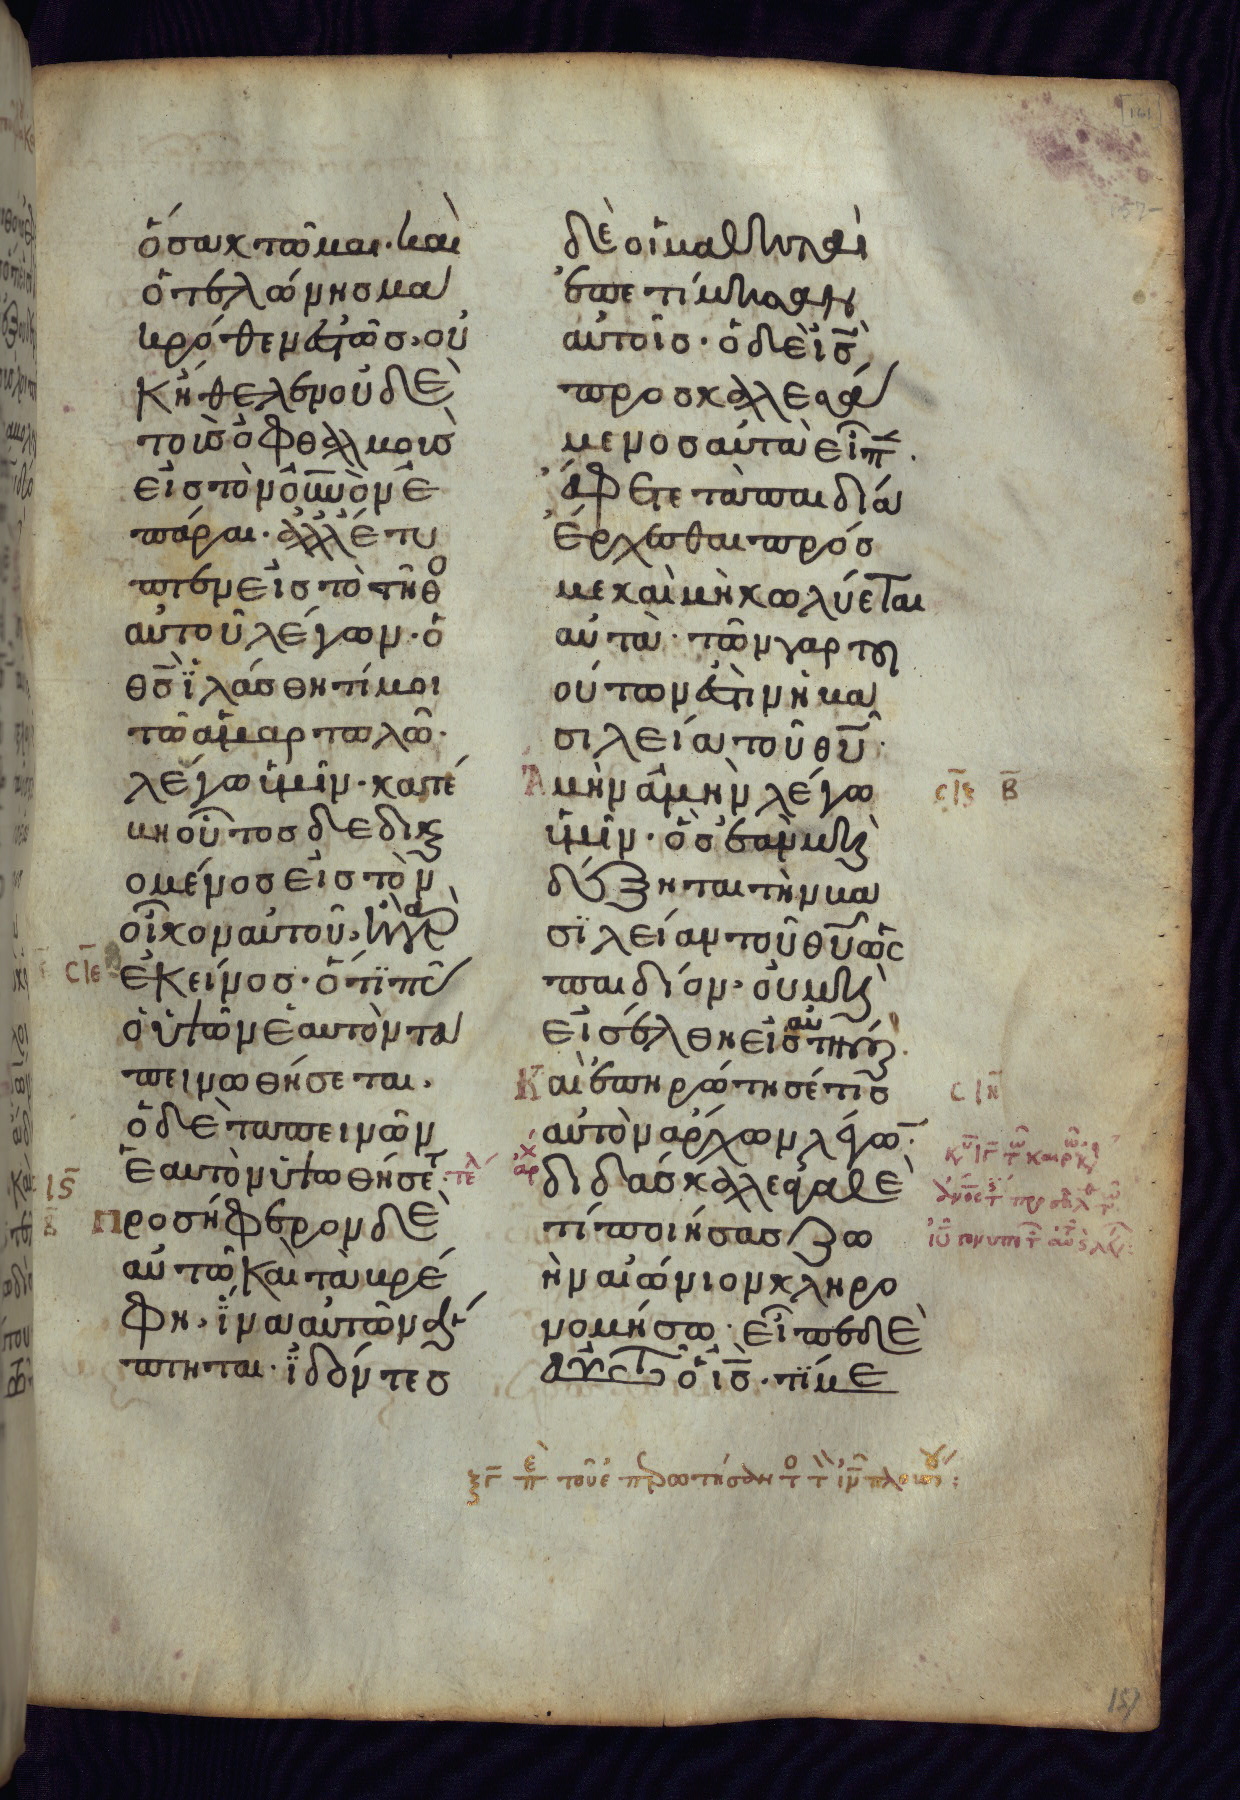 ὅσα κτῶμαι· καὶ
ὁ τελώνησ μα
κρόθεν ἑστῶσ, οὐ
κ ἤθελεν οὐδὲ
τοὶσ ὀφθαλμοὶσ
εἰσ τὸν οὐνὸν ἐ
πάραι· ἀλλ' ἔτυ
πτεν εἰσ τὸ στῆθο
αὐτοῦ λέγων· ὁ
θσ ἱλάσθητί μοι
τῶ ἁμαρτωλῶ·
λέγω ὑμῖν· κατέ
βη οὗτοσ δεδικαι
ομένοσ εἰσ τὸν
οἶκον αὐτοῦ, ἢ γὰρ
σ̅ι̅ε̅
ἐκεῖνοσ· ὅτι πᾶσ
ὁ ὑψῶν ἑαυτὸν τα
πεινωθήσεται,
ὁ δὲ ταπεινῶν
ἑαυτὸν ὑψωθήσετ τέλ
ι̅ς̅
β̅
Προσήφερον δὲ
αὐτῶ καὶ τὰ βρέ
φη, ἵνα αὐτῶν ἅ
πτηται· ἰδόντεσ
δὲ οἱ μαθηταὶ
ἐπετίμησαν
αὐτοῖσ· ὁ δὲ ισ
προσκαλεσά
μενοσ αὐτὰ εἶπ·
ἄφετε τὰ παιδία
ἔρχεσθαι πρόσ
με καὶ μὴ κωλύεται
αὐτά· τῶν γαρ τοι
ούτων ἐστὶν ἡ βα
σιλεία τοῦ θυ·
Ἀμὴν ἀμὴν λέγω
σ̅ι̅ς̅ β̅
ὑμῖν· ὃσ ἐὰν μὴ
δέξηται τὴν βα
σιλείαν τοῦ θυ ὡς
παιδίον, οὐ μὴ
εἰσέλθη εἰσ αὐτήν·
Καὶ ἐπηρώτησέ τισ
σ̅ι̅η̅
αὐτὸν ἄρχων λέγων·
ἀρχ
διδάσκαλε ἀγαθὲ
τί ποιήσασ ζω
ὴν αἰώνιον κληρο
νομήσω· εἶπεν δὲ
αὐτῶ ὁ ισ· τί με